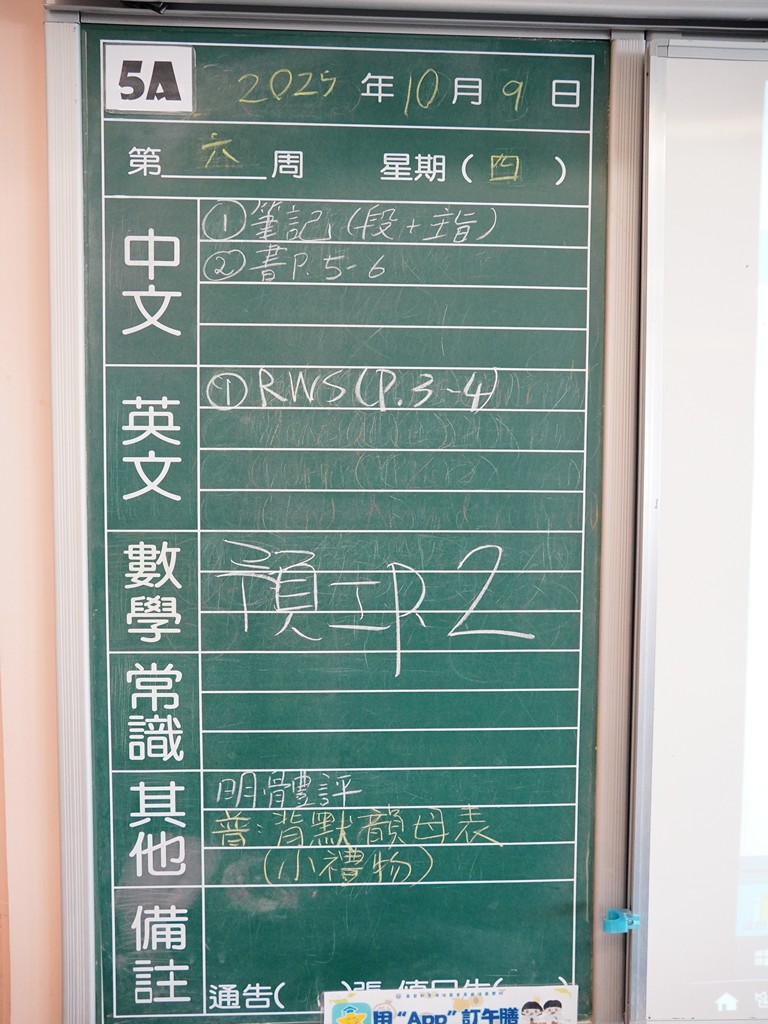 5A 2025年10月9日
第六周 星期(四)
中文
①筆記(段+主旨)
②書P.5-6
英文
①RWS(P.3-4)
數學
預工P.2
常識
其他
明體評
普:背默韻母表
(小禮物)
備註
通告( )張
用“App”訂午膳